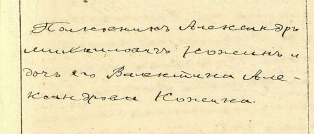 Полковникъ Александръ
Михайловичъ Кожинъ и
дочь его Валентина Але-
ксандровна Кожина.